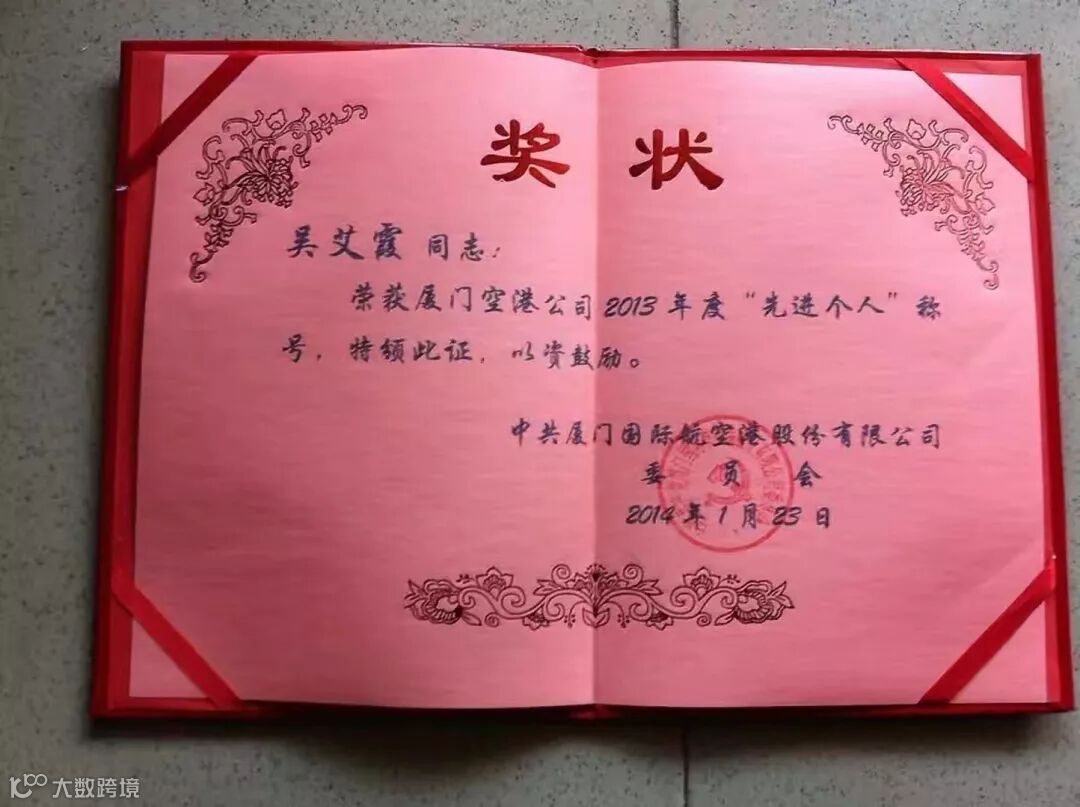 奖状
吴艾霞 同志：
荣获厦门空港公司2013年度“先进个人”称
号，特颁此证，以资鼓励。
中共厦门国际航空港股份有限公司
委员会
2014年1月23日
大数跨境